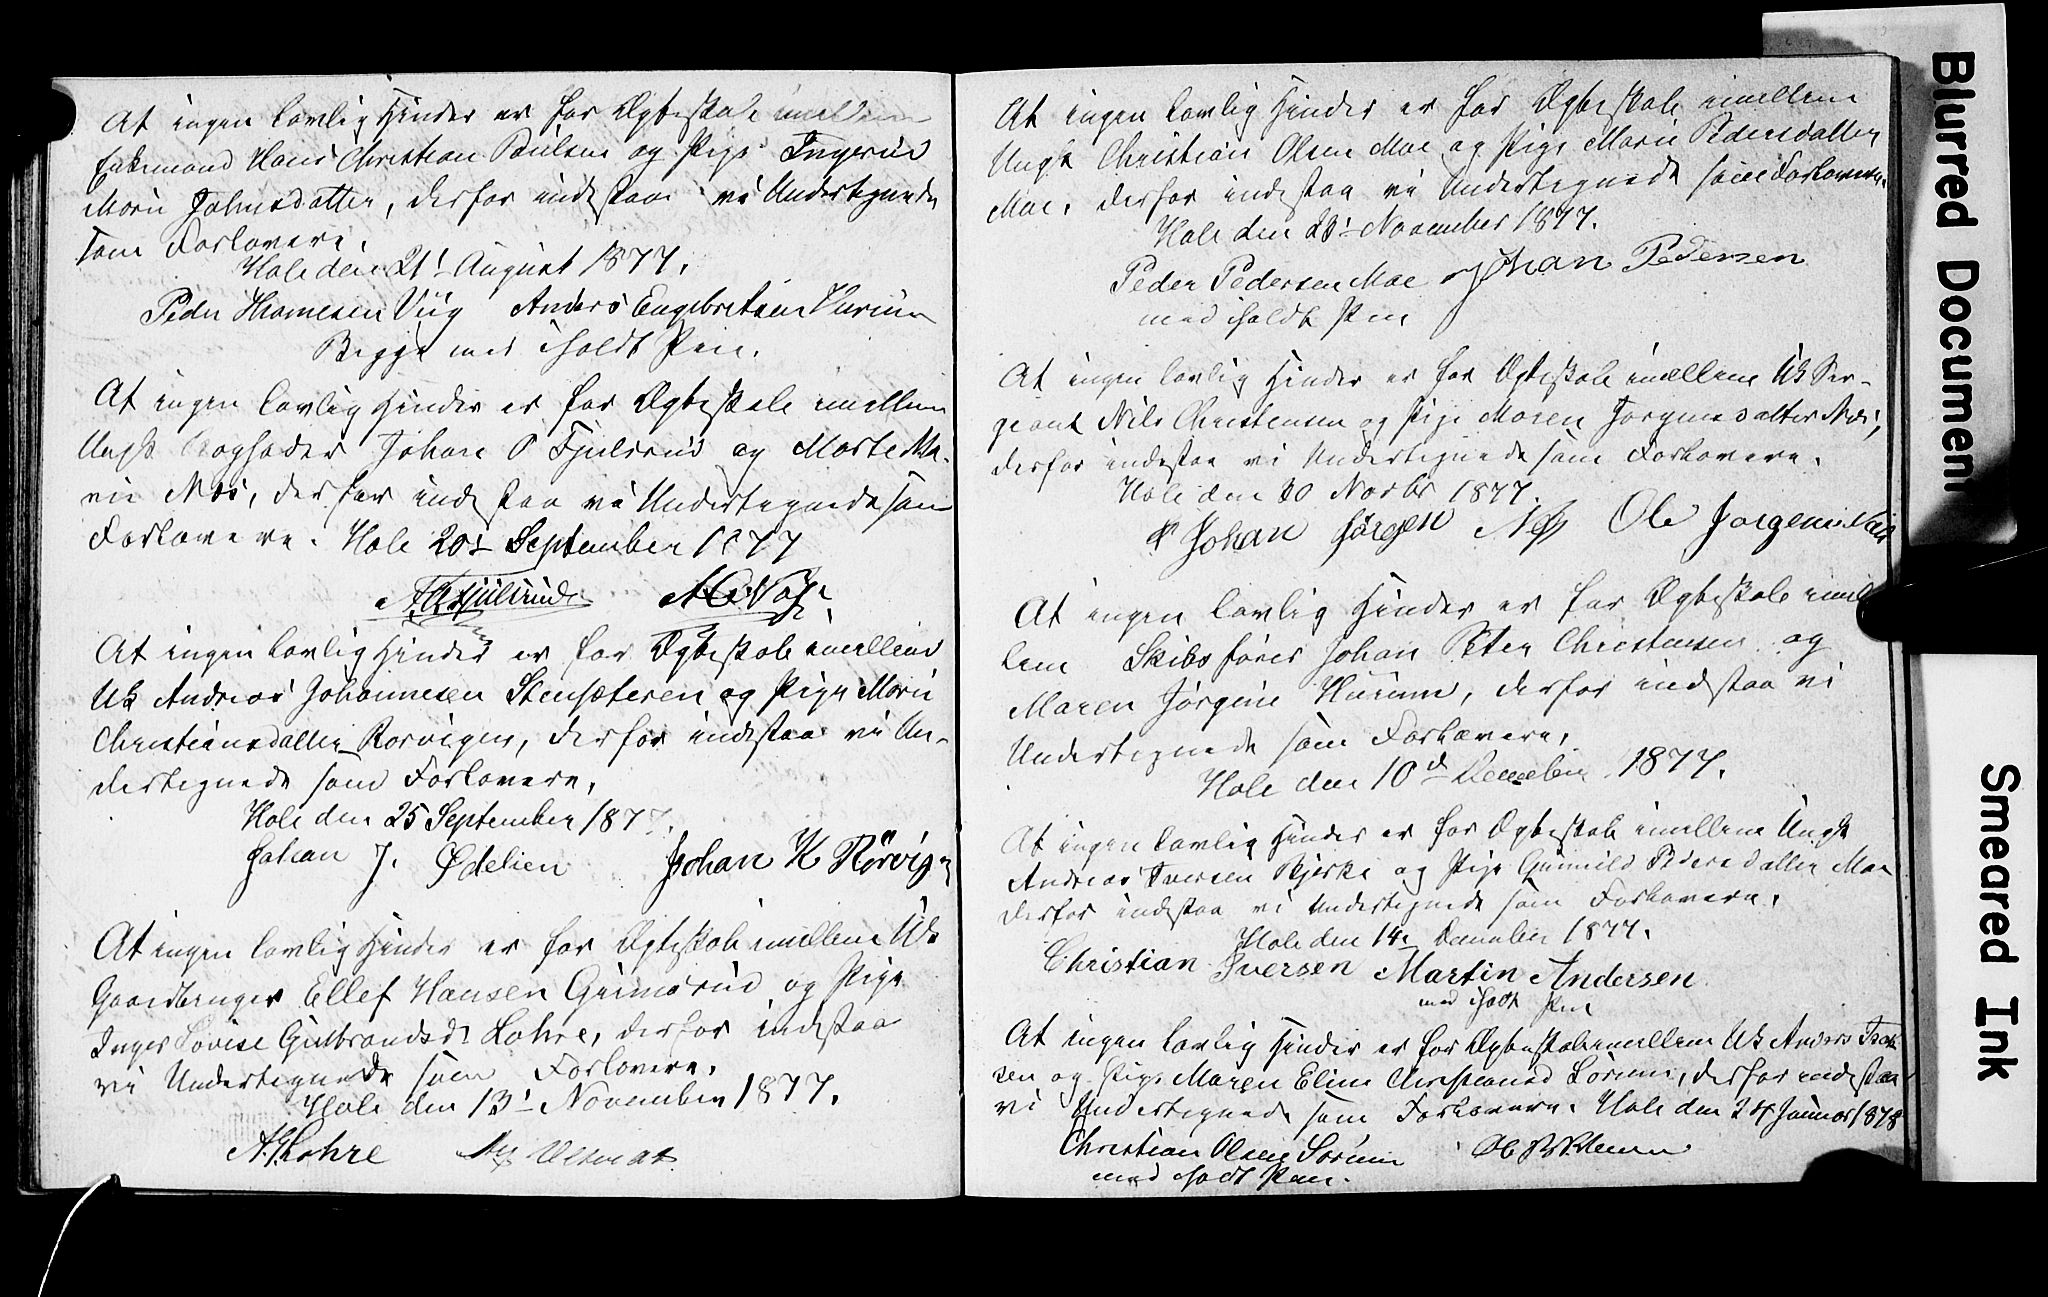 At ingen lovlig Hinder er for Ægteskab imellem
Enkemand Hans Christian Poulsen og Pige Ingerid
Marie Johnsdatter, derfor indestaa vi Undertegnede
som Forlovere.
Hole den 21' August 1877.
Peder Thomesen Viig Anders Engebretsen
Begge med iholdt Pen.
At ingen lovlig Hinder er for Ægteskab imellem
Ungk Johan O Fjulsrud og Marte Ma-
rie Næs, derfor indestaa vi Undertegnede som
Forlovere. Hole 20' September 1877
At ingen lovlig Hinder er for Ægteskab imellem
Uk Andreas Johannesen Stensæteren og Pige Marie
Christiansdatter Rørvigen, derfor indestaa vi Un-
dertegnede som Forlovere.
Hole den 25 September 187
Johan J. Ødelien Johan K Rørvig
At ingen lovlig Hinder er for Ægteskab imellem Uk
Gaardbruger Ellef Hansen Grimsrud og Pige
Inger Lovise Gulbrandsdt Lohre, derfor indestaa
vi Undertegnede som Forlovere.
Hole den 13' November 1877.
A. G. Lohre
At ingen lovlig Hinder er for Ægteskab imellem
Ungk Christian Olsen Moe og Pige Marie Pedersdatter
Moe, derfor indestaa vi Undertegnede som Forlovere.
Hole den 23' November 1877.
Peder Pedersen Moe Johan Pedersen
med iholdt Pen
At ingen lovlig Hinder er for Ægteskab imellem Uk Ser-
geant Nils Christensen og Pige Maren Jørgensdatter Næs,
derfor indestaa vi Undertegnede som Forlovere.
Hole den 30 Novbr 1877.
Johan Jørgen Næss Ole Jørgensen
At ingen lovlig Hinder er for Ægteskab imel
lem Skibsfører Johan Peter Christensen og
Maren Jørgine Hurum, derfor indestaa vi
Undertegnede som Forlovere,
Hole den 10d December 1877.
At ingen lovlig Hinder er for Ægteskab imellem Ungk
Andreas Iversen Bjerke og Pige Gunnild Pedersdatter Moe
derfor indestaa vi Undertegnede som Forlovere,
Hole den 14. December 1877.
Christian Iversen Martin Andersen
med iholdt Pen
At ingen lovlig Hinder er for Ægteskab imellem Uk Anders Isak
sen og Pige Maren Eline Christiansd Sørum, derfor indestaa
vi Undertegnede som Forlovere. Hole den 24 Januar 1878
Christian Olsen Sørum
med iholdt Pen.
Blurred Document
Smeared Ink